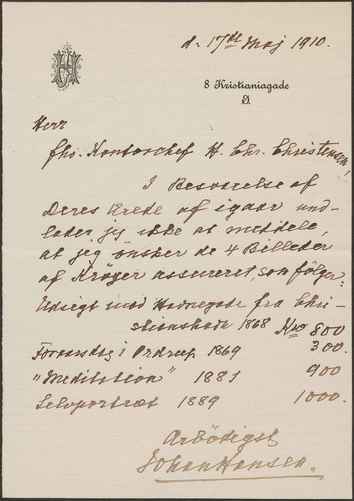 d. 17de Maj 1910.
H
8 Kristianiagade
Ø.
Herr
fhv. Kontorchef H. Chr. Christensen,
I Besvarelse af
Deres Ærede af igaar und-
lader jeg ikke at meddele,
at jeg ønsker de 4 Billeder
af Krøyer assureret, som følger:
Udsigt mod Havnegade fra Chri-
stianshavn 1868 Kro 800
Formiddag i Ordrup 1869 300.
"Meditation" 1881 900
Selvportræt 1889 1000.
Ærbødigst
Johan Hansen.